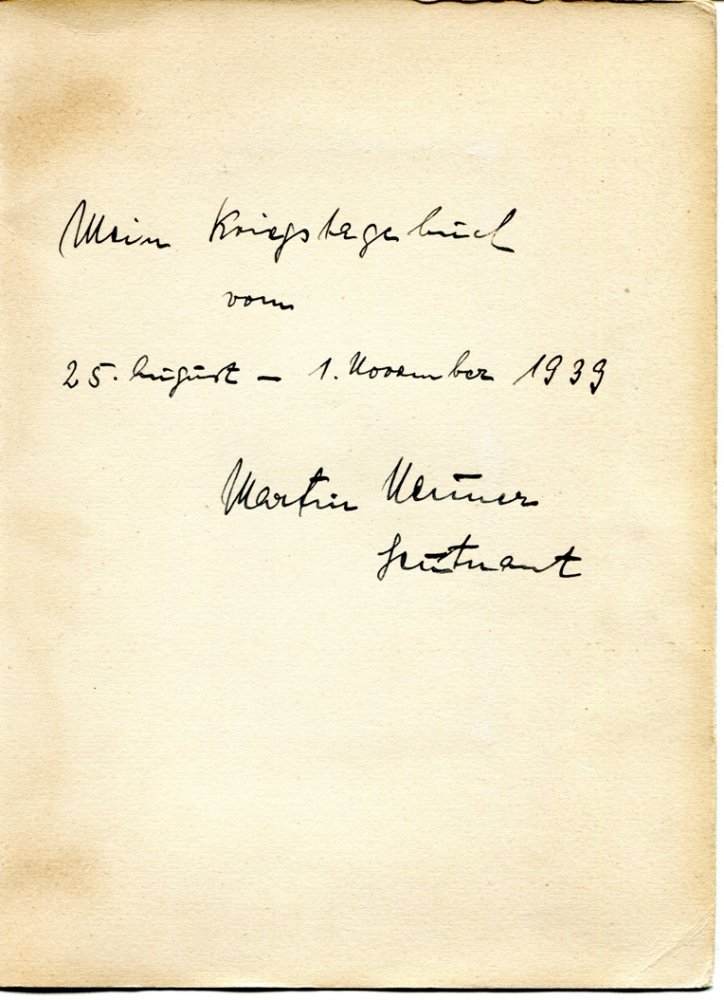 Mein Kriegstagebuch
vom
25. August – 1. November 1939
Martin
Leutnant